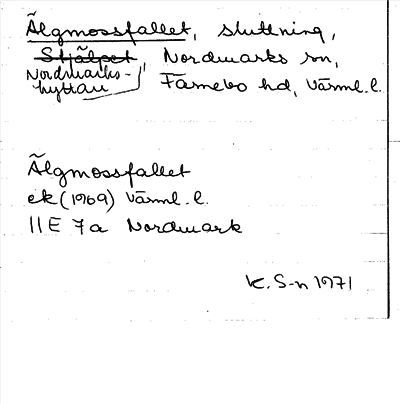 Älgmossfallet, sluttning,
Stjälpet, Nordmarks sn,
Nordmarks-
hyttan
Färnebo hd, Värml. l.
Älgmossfallet
ek (1969) Värml. l.
11E 7a Nordmark
K. S-n 1971